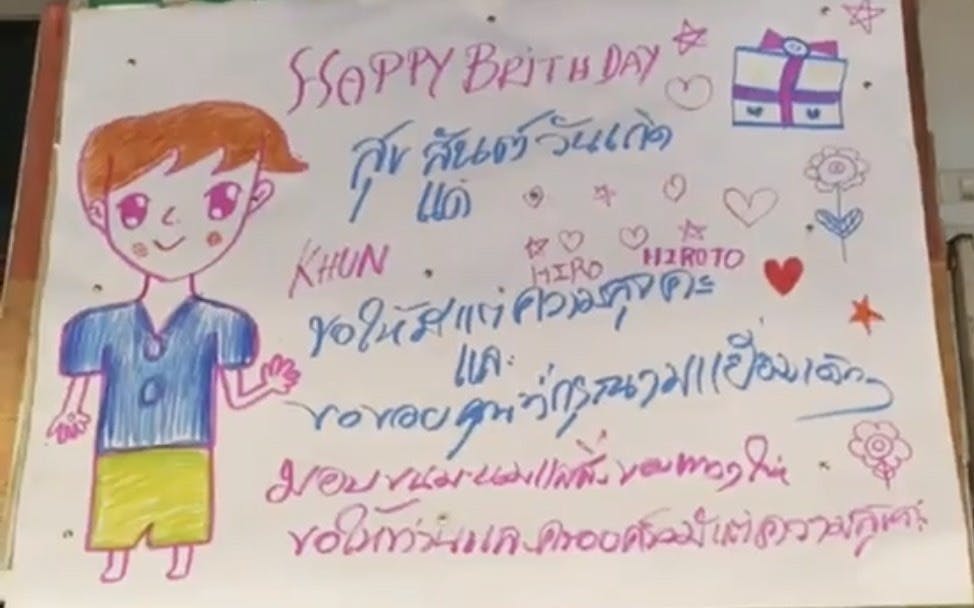 HAPPY BRITHDAY
สุข สันต์ วันเกิด
แด่
KHUN HIRO HIROTO
ขอให้มีแต่ความสุขค่ะ
และ
ขอขอบคุณที่กรุณามาเยี่ยมเด็กๆ
มอบขนม นม และสิ่งของต่างๆ ให้
ขอให้ท่านและครอบครัวมีแต่ความสุขค่ะ